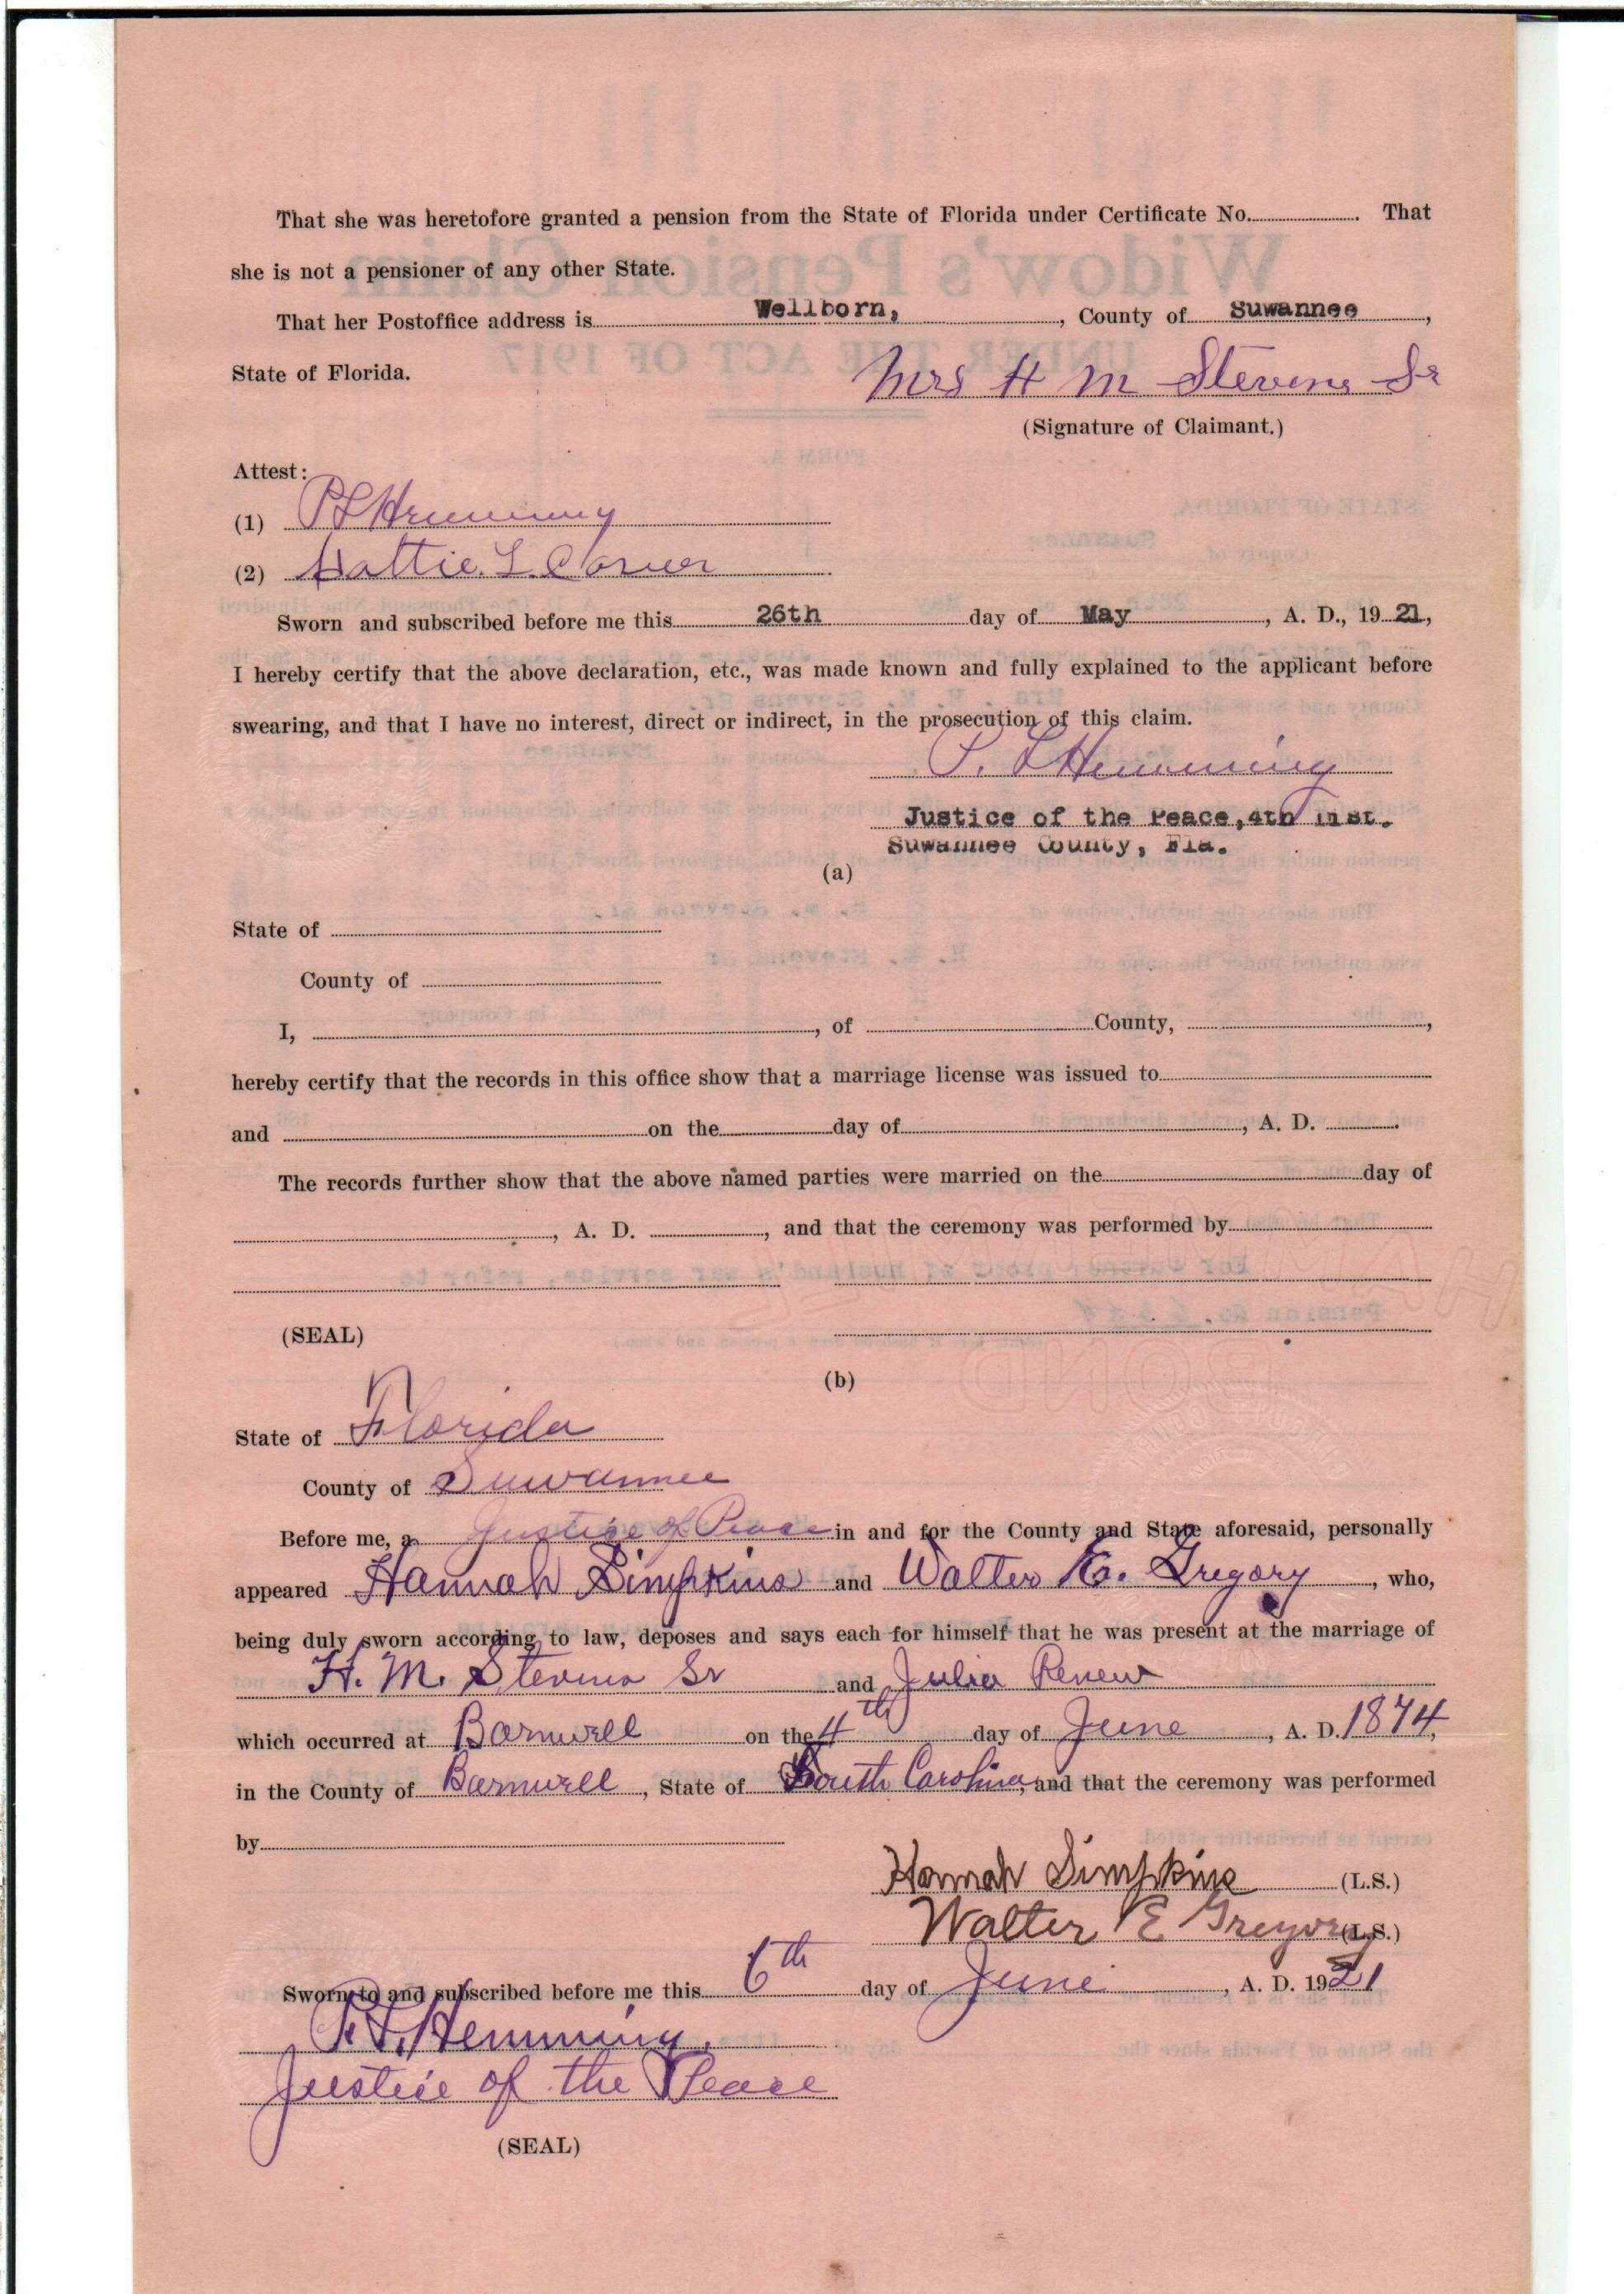 That she was heretofore granted a pension from the State of Florida under Certificate No. . That
she is not a pensioner of any other State.
That her Postoffice address is Wellborn, , County of Suwannee ,
State of Florida.
Mrs H M Stevens Sr
(Signature of Claimant.)
Attest:
(1) P L Hemming
(2) Hattie L.
Sworn and subscribed before me this 26th day of May , A. D., 19 21,
I hereby certify that the above declaration, etc., was made known and fully explained to the applicant before
swearing, and that I have no interest, direct or indirect, in the prosecution of this claim.
P. L Hemming
Justice of the Peace, 4th Dist.
Suwannee County, Fla.
(a)
State of
County of
I, , of County, ,
hereby certify that the records in this office show that a marriage license was issued to
and on the day of , A. D. .
The records further show that the above named parties were married on the day of
, A. D. , and that the ceremony was performed by
(SEAL)
(b)
State of Florida
County of Suwannee
Before me, a Justice of Peace in and for the County and State aforesaid, personally
appeared Hannah Simpkins and Walter E. Gregory , who,
being duly sworn according to law, deposes and says each for himself that he was present at the marriage of
H. M. Stevens Sr and Julia Renew
which occurred at Barnwell on the 4th day of June , A. D. 1874,
in the County of Barnwell , State of South Carolina, and that the ceremony was performed
by
Hannah Simpkins (L.S.)
Walter E Gregory (L.S.)
Sworn to and subscribed before me this 6th day of June , A. D. 1921
P. L. Hemming.
Justice of the Peace
(SEAL)